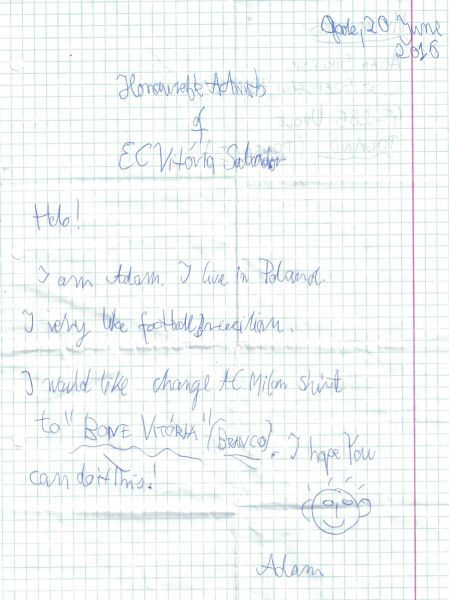 Opole, 20 June
2016
Honourable Activists
of
EC Vitória Salvador
Helo!
I am Adam. I live in Poland.
I very like football Brecilian.
I would like change AC Milan shirt
to "BONE VITÓRIA" (BRANCO). I hope You
can do it this!
Adam